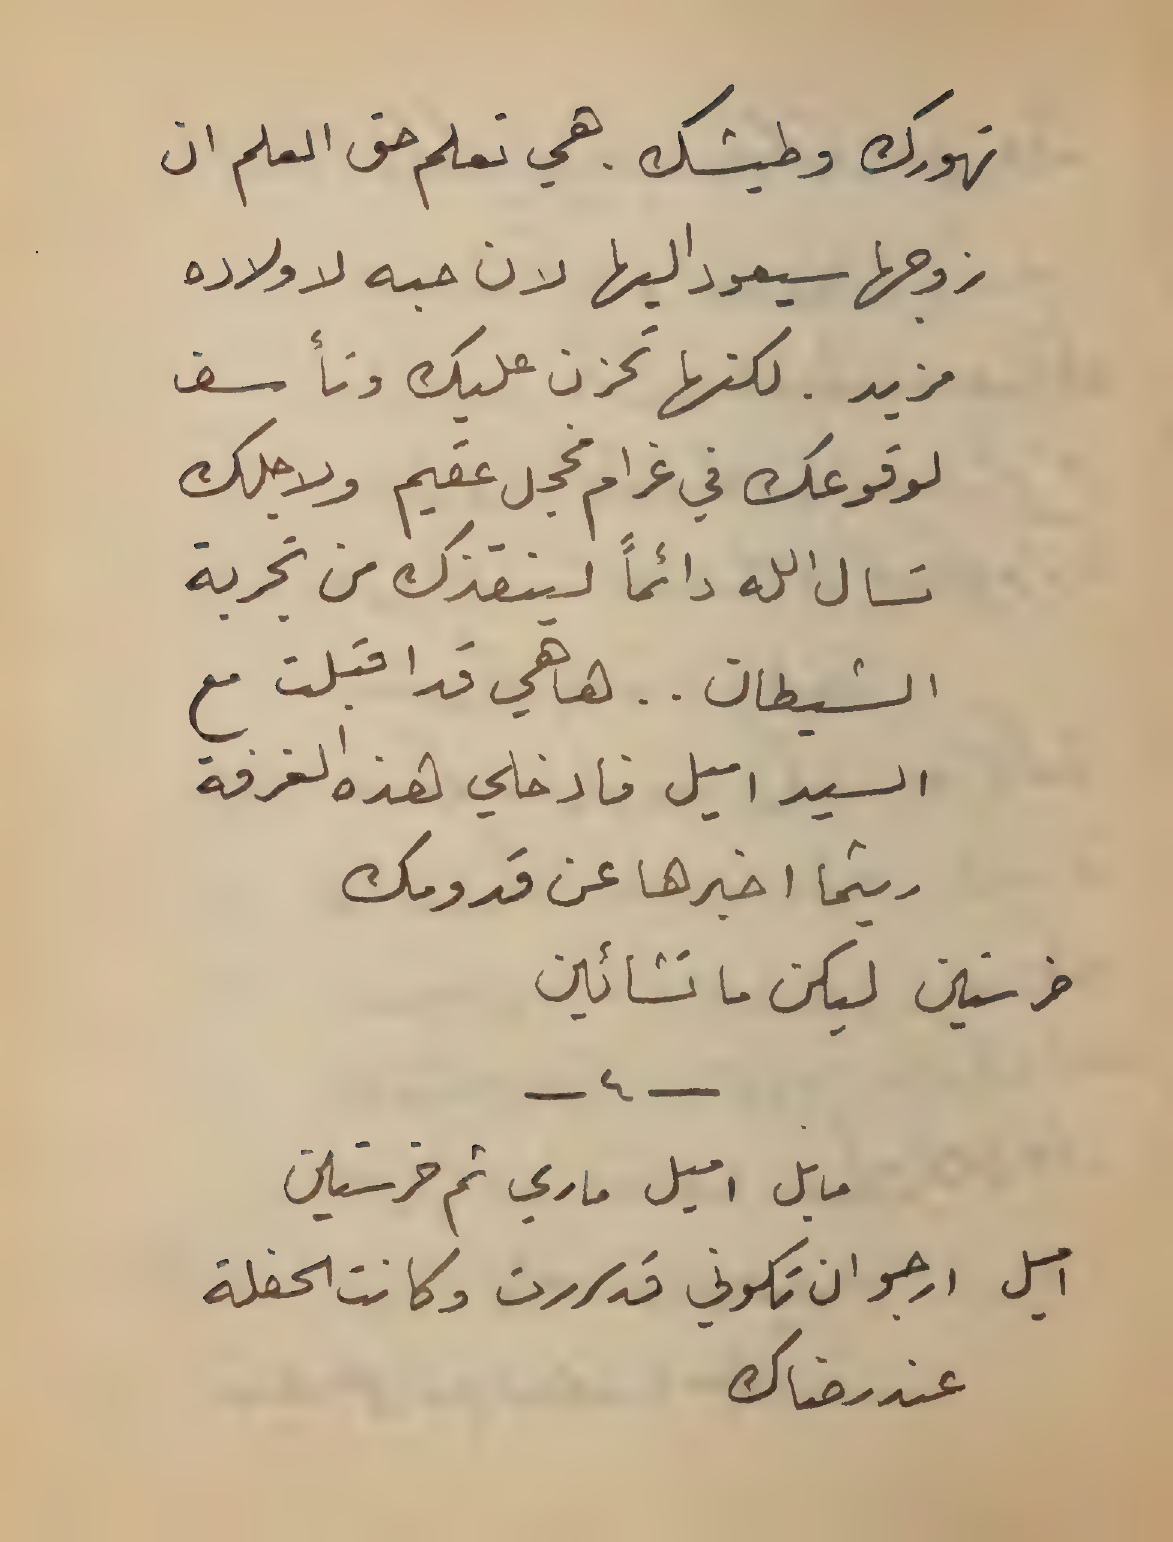 تهورك وطيشك . هي تعلم حق العلم ان
زوجها سيعود اليها لان حبه لاولاده
مزيد . لكنها تحزن عليك وتأسف
لوقوعك في غرام مخجل عقيم ولاجلك
تسال الله دائماً لينقذك من تجربة
الشيطان .. هاهي قد اقبلت مع
السيد اميل فادخلي لهذه الغرفة
ريثما اخبرها عن قدومك
خرستين ليكن ما تشائين
— ٤ —
مابل اميل ماري ثم خرستين
اميل ارجو ان تكوني قد سررت وكانت الحفلة
عند رضاك